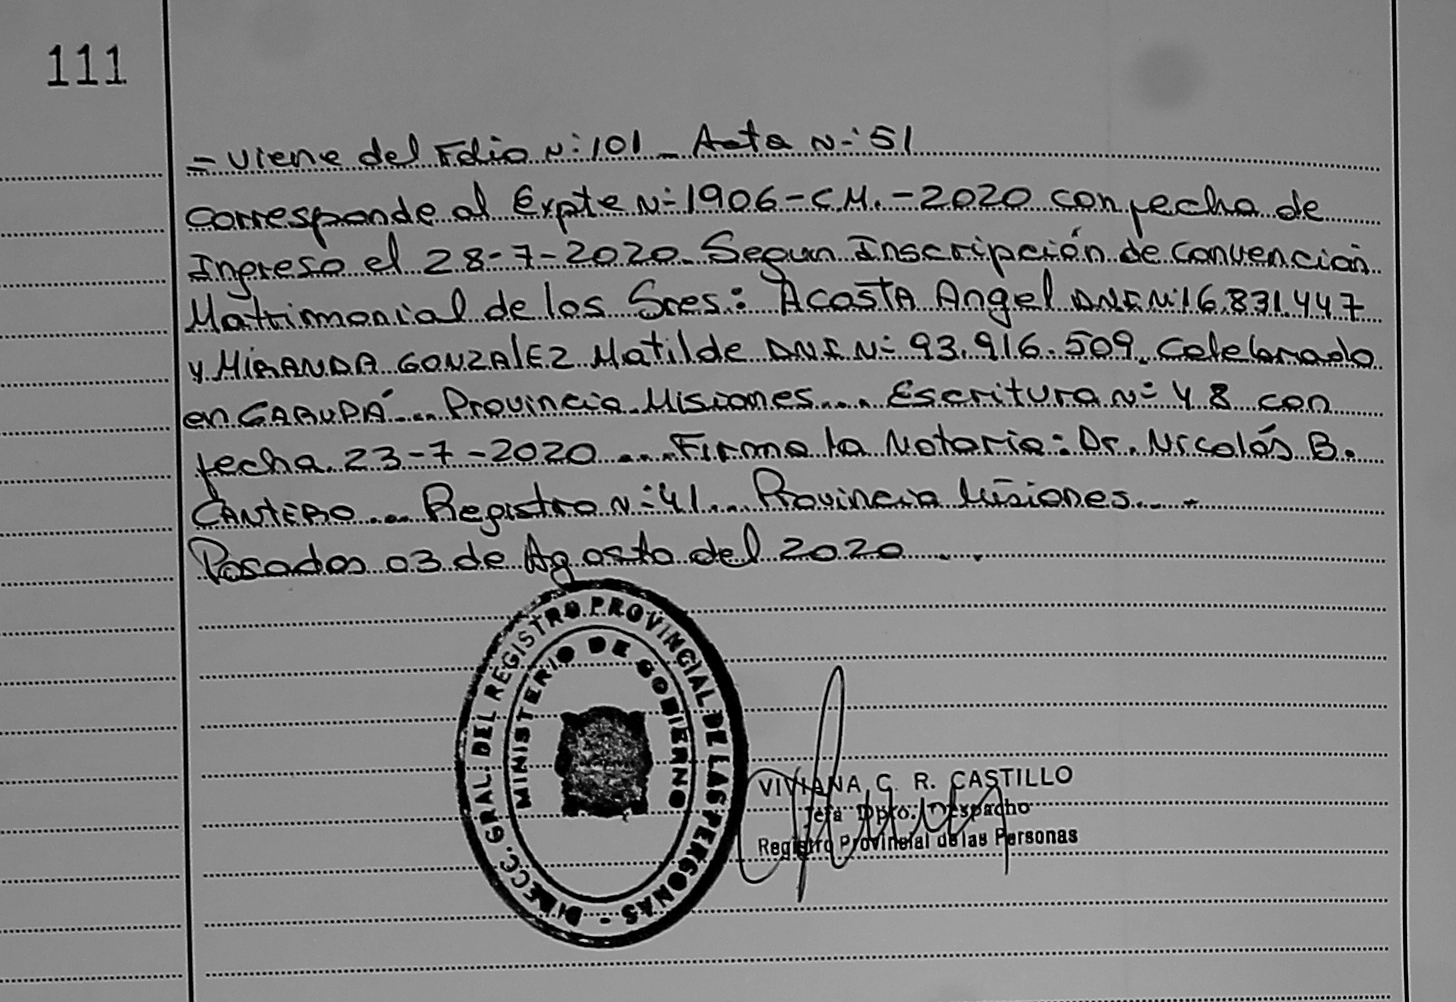 111
= Viene del Folio N: 101 - Acta N: 51
Corresponde al Expte N: 1906-C.M.-2020 con fecha de
Ingreso el 28-7-2020. Segun Inscripción de Convención
Matrimonial de los Sres: ACOSTA Angel DNI N: 16.831.447
y MIRANDA GONZALEZ Matilde DNI N: 93.916.509. Celebrado
en GARUPÁ ... Provincia Misiones.... Escritura N: 48 con
fecha 23-7-2020 .... Firma la Notaria: Dr. Nicolás B.
CANTERO .... Registro N: 41.... Provincia Misiones....
Posadas 03 de Agosto del 2020 ...
DIRECC. GRAL. DEL REGISTRO PROVINCIAL DE LAS PERSONAS -
MINISTERIO DE GOBIERNO
VIVIANA C. R. CASTILLO
Jefa Dpto. Despacho
Registro Provincial de las Personas